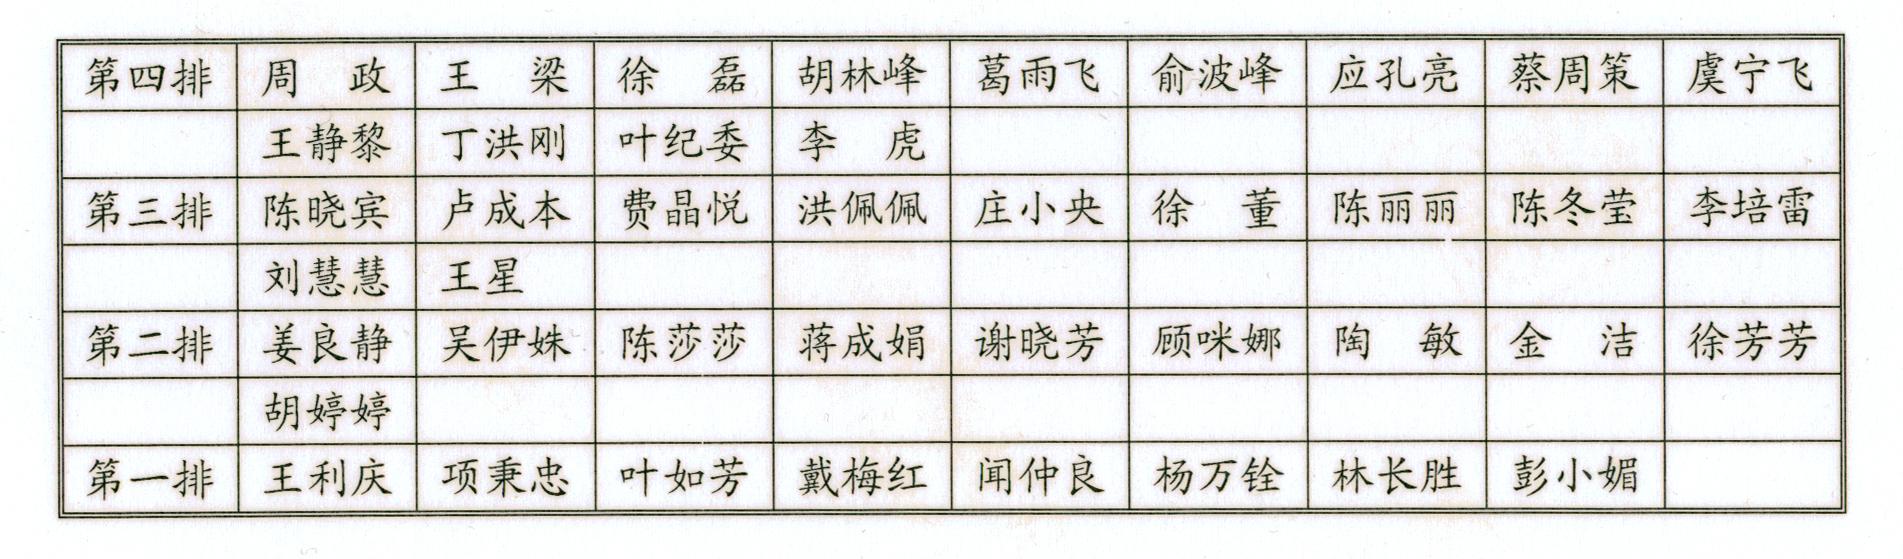 第四排 周 政 王 梁 徐 磊 胡林峰 葛雨飞 俞波峰 应孔亮 蔡周策 虞宁飞
王静黎 丁洪刚 叶纪委 李 虎
第三排 陈晓宾 卢成本 费晶悦 洪佩佩 庄小央 徐 董 陈丽丽 陈冬莹 李培雷
刘慧慧 王星
第二排 姜良静 吴伊姝 陈莎莎 蒋成娟 谢晓芳 顾咪娜 陶 敏 金 洁 徐芳芳
胡婷婷
第一排 王利庆 项秉忠 叶如芳 戴梅红 闻仲良 杨万铨 林长胜 彭小媚